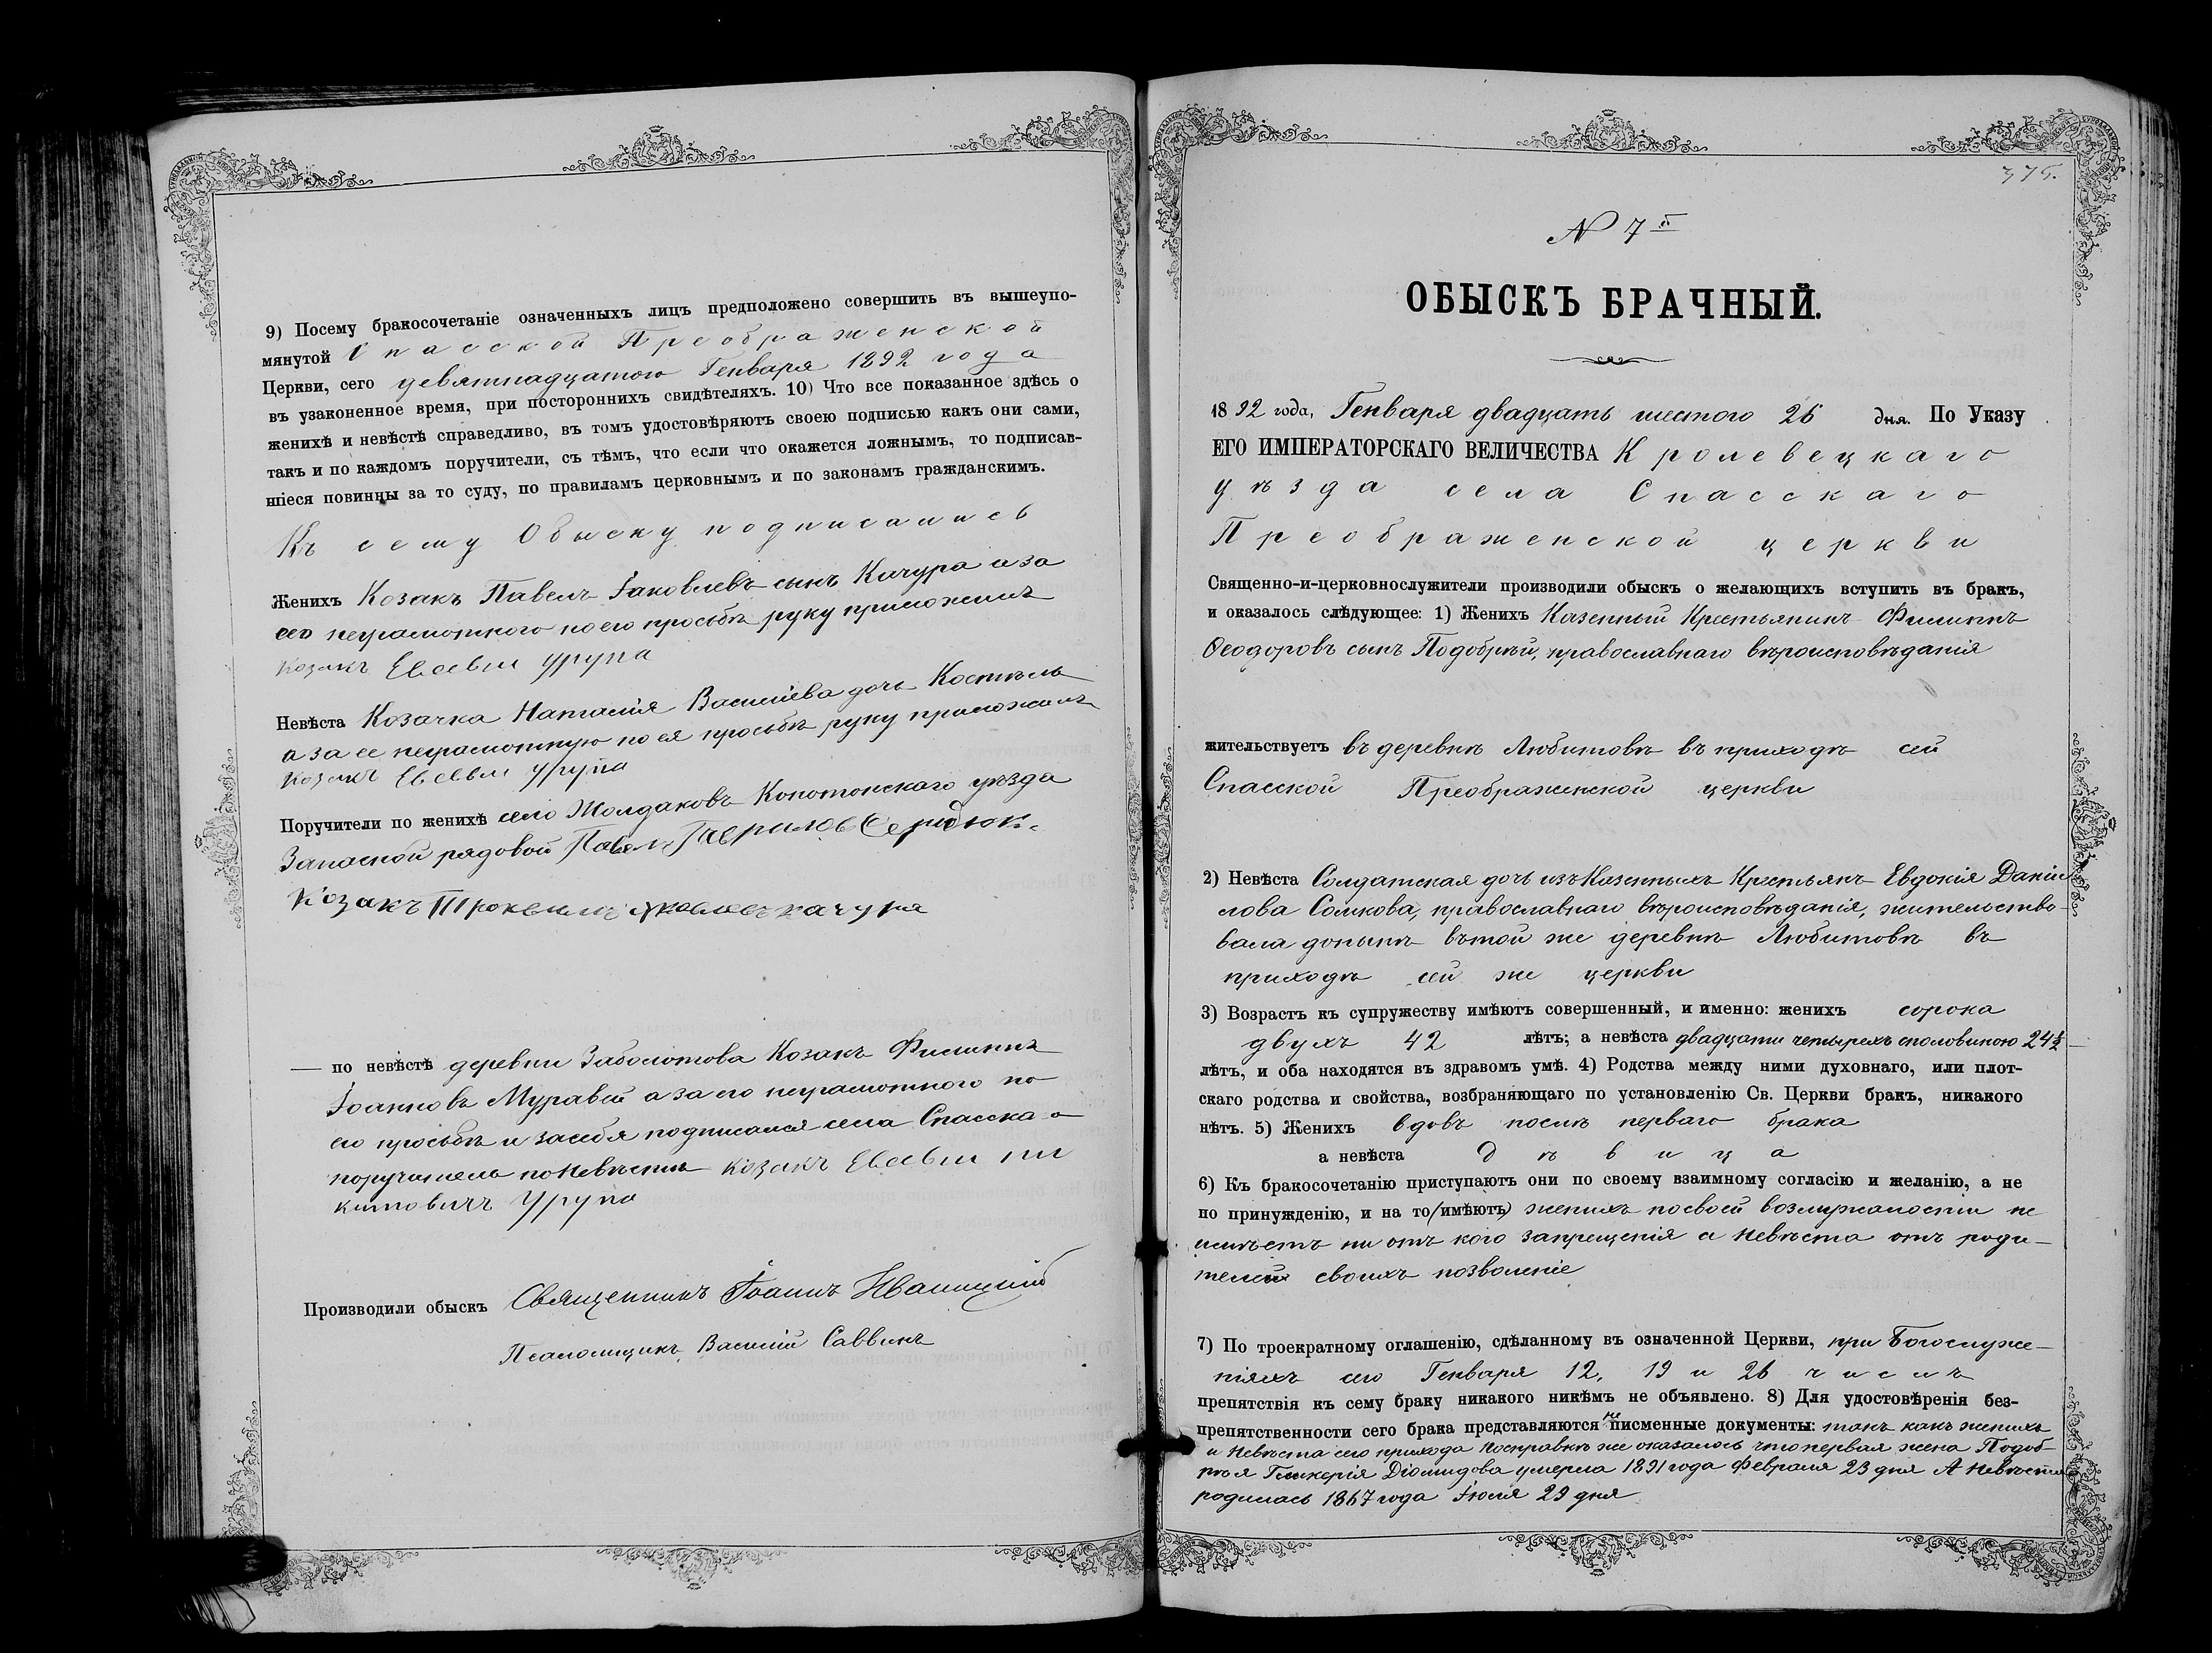 9) Посему бракосочетаніе означенныхъ лицъ предположено совершить въ вышеупо-
мянутой Спасской Преображенской
Церкви, сего девятнадцатого Генваря 1892 года
въ узаконенное время, при постороннихъ свидѣтеляхъ. 10) Что все показанное здѣсь о
женихѣ и невѣстѣ справедливо, въ томъ удостовѣряютъ своею подписью какъ они сами,
такъ и по каждомъ поручители, съ тѣмъ, что если что окажется ложнымъ, то подписав-
шіеся повинны за то суду, по правиламъ церковнымъ и по законамъ гражданскимъ.
Къ сему Обыску подписались
Женихъ Козакъ Павелъ Іаковлевъ сынъ Качура а за
его неграмотного по его прозьбѣ руку приложилъ
козакъ Евсевій Урупа
Невѣста Козачка Наталія Василіева дочь Костѣль
а за ее неграмотную по ея прозьбѣ руку приложилъ
козакъ Евсевій Урупа
Поручители по женихѣ село Жолдаковъ Конотопскаго уѣзда
Запасной рядовой Павелъ Гавриловъ Сердюкъ
Козакъ Яковлевъ качура
— по невѣстѣ деревни Заболотова Козакъ Филиппъ
Іоанновъ Муравей а за его неграмотного по
его прозьбѣ и за себя подписался села Спасска-о
поручитель по Невѣстѣ козакъ Евсевій ни
китовичъ Урупа
Производили обыскъ Священникъ Іоаннъ
Псаломщикъ Василій Саввинъ
375.
N 7й
ОБЫСКЪ БРАЧНЫЙ.
1892 года, Генваря двадцать шестого 26 дня. По Указу
ЕГО ИМПЕРАТОРСКАГО ВЕЛИЧЕСТВА Кролевецкаго
уѣзда села Спасскаго
Преображенской церкви
Священно-и-церковнослужители производили обыскъ о желающихъ вступить въ бракъ,
и оказалось слѣдующее: 1) Женихъ Казенный Крестьянинъ Филиппъ
Ѳеодоровъ сынъ Подобрѣй, православнаго вѣроисповѣданія
жительствуетъ въ деревнѣ Любитовѣ въ приходѣ сей
Спасской Преображенской церкви
2) Невѣста Солдатская дочь изъ Казенныхъ Крестьянъ Евдокія Даніи
лова Сомкова, православнаго вѣроисповѣданія, жительство-
вала донынѣ въ той же деревнѣ Любитовѣ въ
приходѣ сей же церкви
3) Возрастъ къ супружеству имѣютъ совершенный, и именно: женихъ сорока
двухъ 42 лѣтъ; а невѣста двадцати четырехъ споловиною 24½
лѣтъ, и оба находятся въ здравомъ умѣ. 4) Родства между ними духовнаго, или плот-
скаго родства и свойства, возбраняющаго по установленію Св. Церкви бракъ, никакого
нѣтъ. 5) Женихъ вдовъ послѣ перваго брака
а невѣста дѣвица
6) Къ бракосочетанію приступаютъ они по своему взаимному согласію и желанію, а не
по принужденію, и на то (имѣютъ) женихъ по своей возмужалости не
имѣетъ ни отъ кого запрещенія а Невѣста отъ роди-
телей своихъ позволеніе
7) По троекратному оглашенію, сдѣланному въ означенной Церкви, при Богослуже-
ніяхъ сего Генваря 12, 19 и 26 числъ
препятствія къ сему браку никакого никѣмъ не объявлено. 8) Для удостовѣренія без-
препятственности сего брака представляются не писменные документы: такъ какъ женихъ
и Невѣста сего прихода Посправкѣ же оказалось что первая жена Подоб-
рѣя Гликерія Діомидова умерла 1891 года Февраля 23 дня А Невѣста
родилась 1867 года Іюля 29 дня